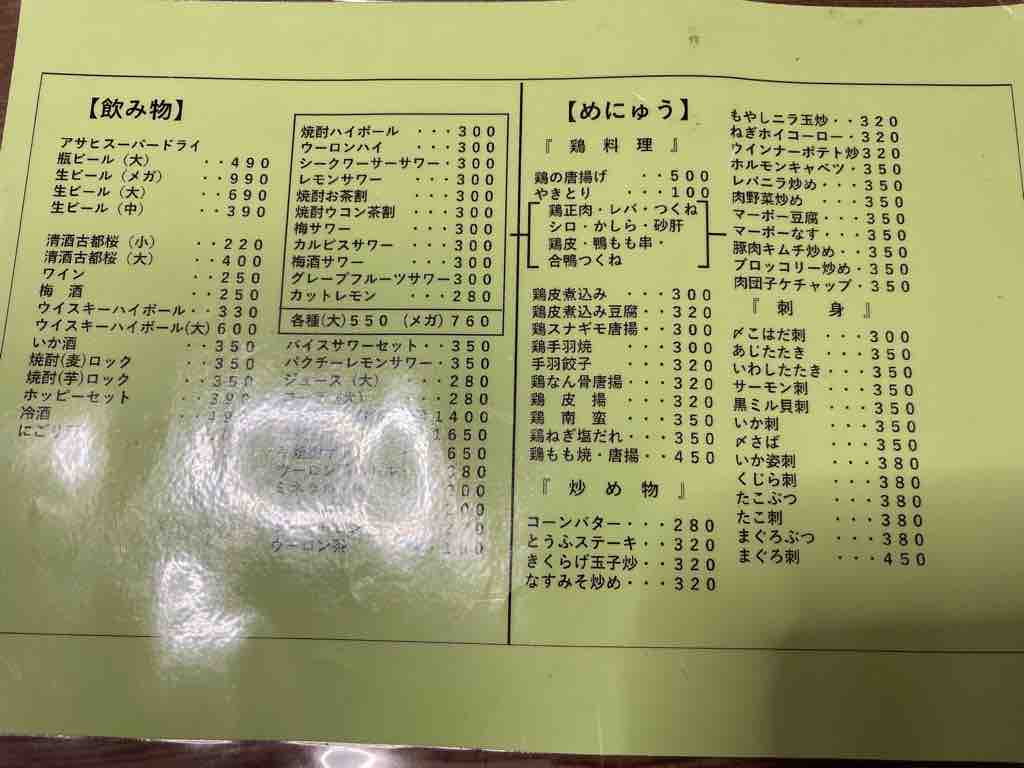 【飲み物】
アサヒスーパードライ
瓶ビール（大）　・・４９０
生ビール（メガ）　・・９９０
生ビール（大）　・・６９０
生ビール（中）　・・３９０
清酒古都桜（小）　・・２２０
清酒古都桜（大）　・・４００
ワイン　・・２５０
梅　酒　・・２５０
ウイスキーハイボール・・３３０
ウイスキーハイボール(大)６００
いか酒　・・３５０
焼酎(麦)ロック　・・３５０
焼酎(芋)ロック　・・３５０
ホッピーセット　・・３９０
冷酒
にごり
焼酎ハイボール　・・・３００
ウーロンハイ　・・・３００
シークワーサーサワー・３００
レモンサワー　・・・３００
焼酎お茶割　・・・３００
焼酎ウコン茶割　・・・３００
梅サワー　・・・３００
カルピスサワー　・・・３００
梅酒サワー　・・・３００
グレープフルーツサワー３００
カットレモン　・・・２８０
各種(大)５５０　(メガ)７６０
バイスサワーセット・・３５０
パクチーレモンサワー・３５０
ジュース（大）　・・・２８０
２８０
１４００
１６５０
６５０
ウーロン茶
【めにゅう】
『　鶏　料　理　』
鶏の唐揚げ　・・５００
やきとり　・・・１００
鶏正肉・レバ・つくね
シロ・かしら・砂肝
鶏皮・鴨もも串・
合鴨つくね
鶏皮煮込み　・・・３００
鶏皮煮込み豆腐・・・３２０
鶏スナギモ唐揚・・・３００
鶏手羽焼　・・・３００
手羽餃子　・・・３２０
鶏なん骨唐揚・・・３２０
鶏　皮　揚　・・・３２０
鶏　南　蛮　・・・３５０
鶏ねぎ塩だれ・・・３５０
鶏もも焼・唐揚・・４５０
『　炒　め　物　』
コーンバター・・・２８０
とうふステーキ・・・３２０
きくらげ玉子炒・・・３２０
なすみそ炒め・・・３２０
もやしニラ玉炒・・３２０
ねぎホイコーロー・３２０
ウインナーポテト炒３２０
ホルモンキャベツ・３５０
レバニラ炒め・・・３５０
肉野菜炒め　・・・３５０
マーボー豆腐・・・３５０
マーボーなす・・・３５０
豚肉キムチ炒め・・３５０
ブロッコリー炒め・３５０
肉団子ケチャップ・３５０
『　刺　　身　』
〆こはだ刺　・・・３００
あじたたき　・・・３５０
いわしたたき・・・３５０
サーモン刺　・・・３５０
黒ミル貝刺　・・・３５０
いか刺　・・・３５０
〆さば　・・・３５０
いか姿刺　・・・３８０
くじら刺　・・・３８０
たこぶつ　・・・３８０
たこ刺　・・・３８０
まぐろぶつ　・・・３８０
まぐろ刺　・・・４５０